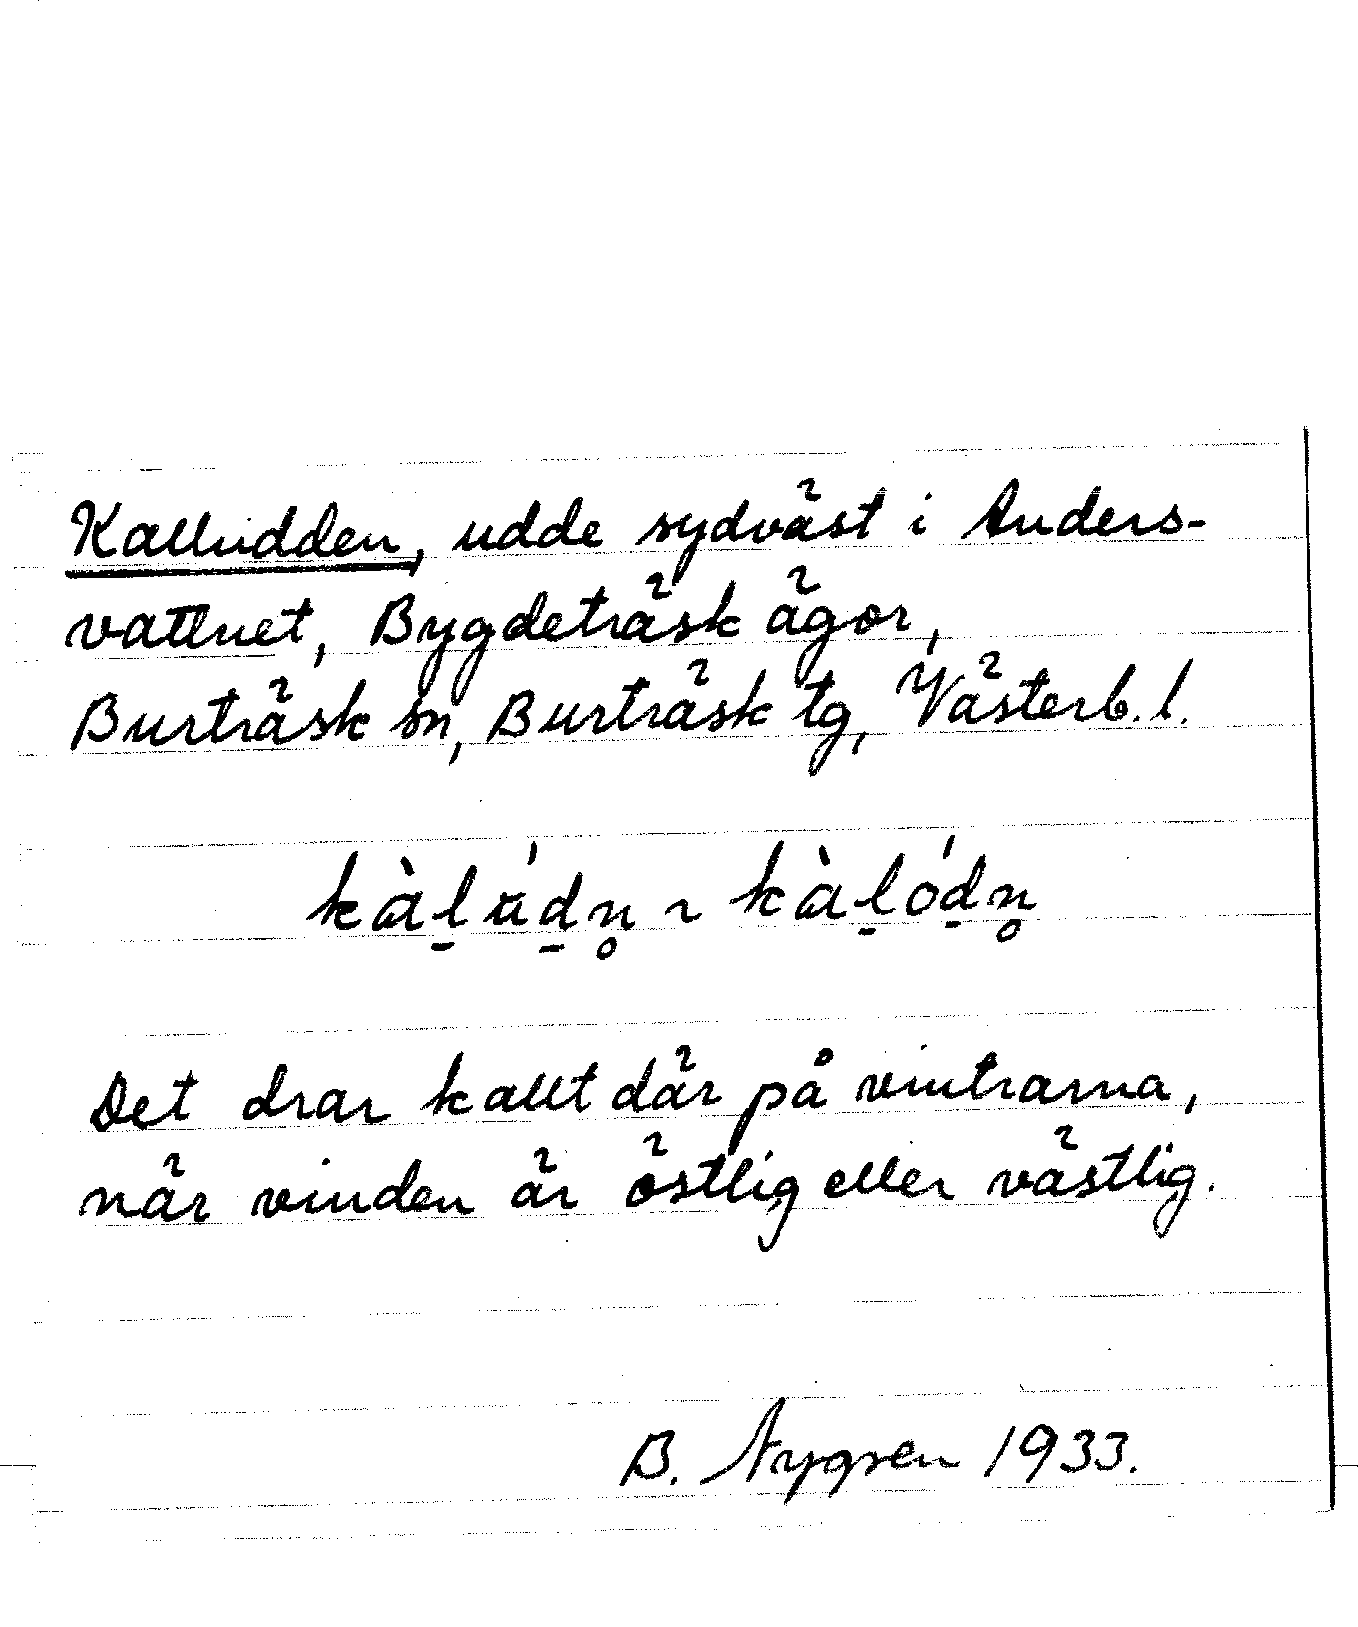 Kalludden, udde sydväst i Anders-
vattnet, Bygdeträsk ägor,
Burträsk sn, Burträsk tg, Västerb. l.
kàl̠ ú d̠n̥ ~ kàl̠ód̠n̥
Det drar kallt där på vintrarna,
när vinden är östlig eller västlig.
B. Nygren 1933.